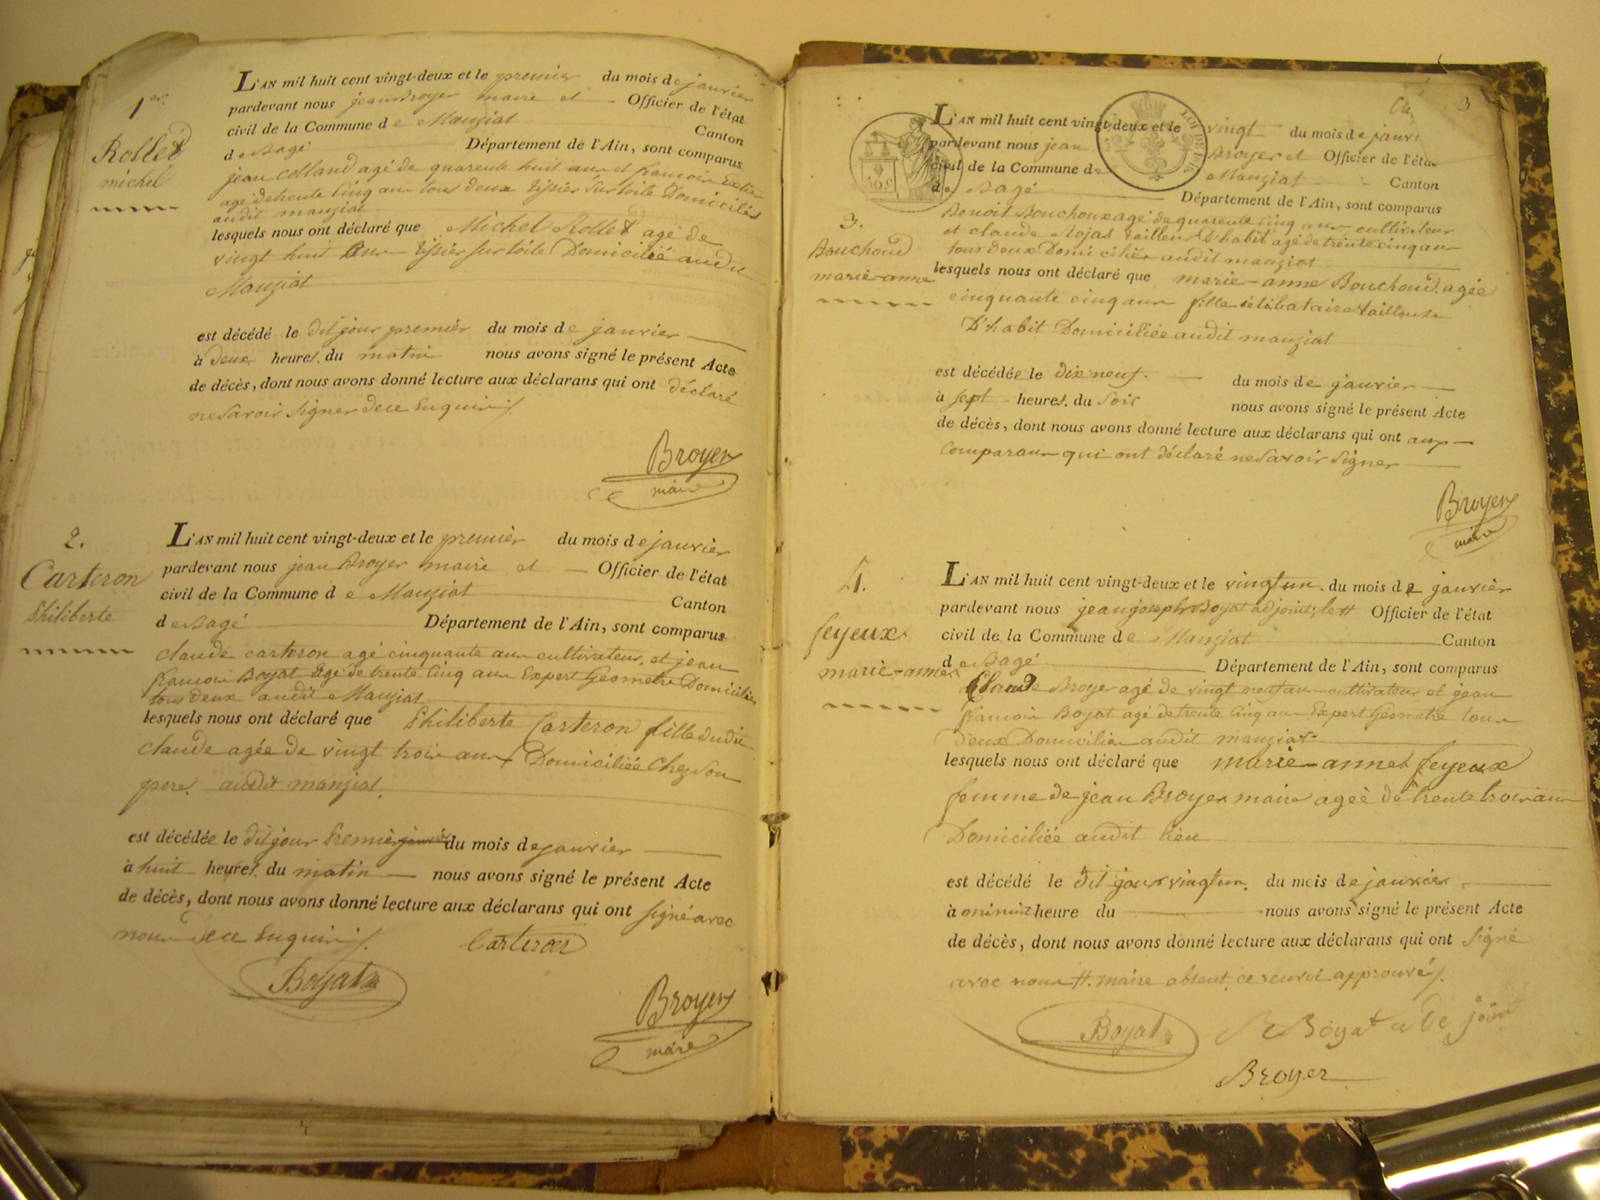 1er
Rolled
michel
L'AN mil huit cent vingt-deux et le premier du mois de janvier
pardevant nous jean Broyer maire et Officier de l'état
civil de la Commune de Manziat Canton
de Bagé Département de l'Ain, sont comparus
jean Colland agé de quarente huit ans et francois
agé de trente Cinq ans tous deux tissier sur toile Domiciliés
audit manziat
lesquels nous ont déclaré que Michel Rolled agé de
vingt huit ans tissier sur toile Domicilié audit
Manziat
est décédé le dit jour premier du mois de janvier
à deux heures du matin nous avons signé le présent Acte
de décès, dont nous avons donné lecture aux déclarans qui ont déclaré
ne savoir signer de ce Enquis
Broyer
maire
2.
Carteron
Philiberte
L'AN mil huit cent vingt-deux et le premier du mois de janvier
pardevant nous jean Broyer maire et Officier de l'état
civil de la Commune de Manziat Canton
de Bagé Département de l'Ain, sont comparus
claude carteron agé cinquante ans cultivateur et jean
francois Boyat agé de trente cinq ans Expert Géometre Domiciliés
tous deux audit Manziat
lesquels nous ont déclaré que Philiberte Carteron fille dudit
claude agée de vingt trois ans Domiciliée Chez son
pere audit manziat
est décédée le dit jour Premier janvier du mois de janvier
à huit heures du matin nous avons signé le présent Acte
de décès, dont nous avons donné lecture aux déclarans qui ont signé avec
nous de ce Enquis
Carteron
Boyat
Broyer
maire
3
10 c
3.
Bouchoud
marie-anne
L'AN mil huit cent vingt-deux et le vingt du mois de janvi
pardevant nous jean Broyer et Officier de l'état
civil de la Commune de Manziat Canton
de Bagé Département de l'Ain, sont comparus
Benoit Bouchoux agé de quarente Cinq ans cultivateur
et claude Rojas tailleur D'habit agé de trente cinq ans
tous deux Domiciliés audit manziat
lesquels nous ont déclaré que marie-anne Bouchoud agée
cinquante cinq ans fille célibataire tailleuse
D'habit Domiciliée audit manziat
est décédée le dix neuf du mois de janvier
à sept heures du soir nous avons signé le présent Acte
de décès, dont nous avons donné lecture aux déclarans qui ont aux
Comparans qui ont déclaré ne savoir signer
Broyer
maire
4.
feyeux
marie-annes
L'AN mil huit cent vingt-deux et le vingtun du mois de janvier
pardevant nous jean joseph Boyat adjoint, le # Officier de l'état
civil de la Commune de Manziat Canton
de Bagé Département de l'Ain, sont comparus
Claude Broyer agé de vingt neuf ans cultivateur et jean
francois Boyat agé de trente Cinq ans Expert Géometre tous
Deux Domiciliés audit manziat
lesquels nous ont déclaré que marie-annes feyeux
femme de jean Broyer maire agée de trente trois ans
Domiciliée audit lieu
est décédé le dit jour vingtun du mois de janvier
à minuit heure du nous avons signé le présent Acte
de décès, dont nous avons donné lecture aux déclarans qui ont signé
avec nous # maire absent, ce renvoi approuvé
Boyat
Boyat adjoint
Broyer